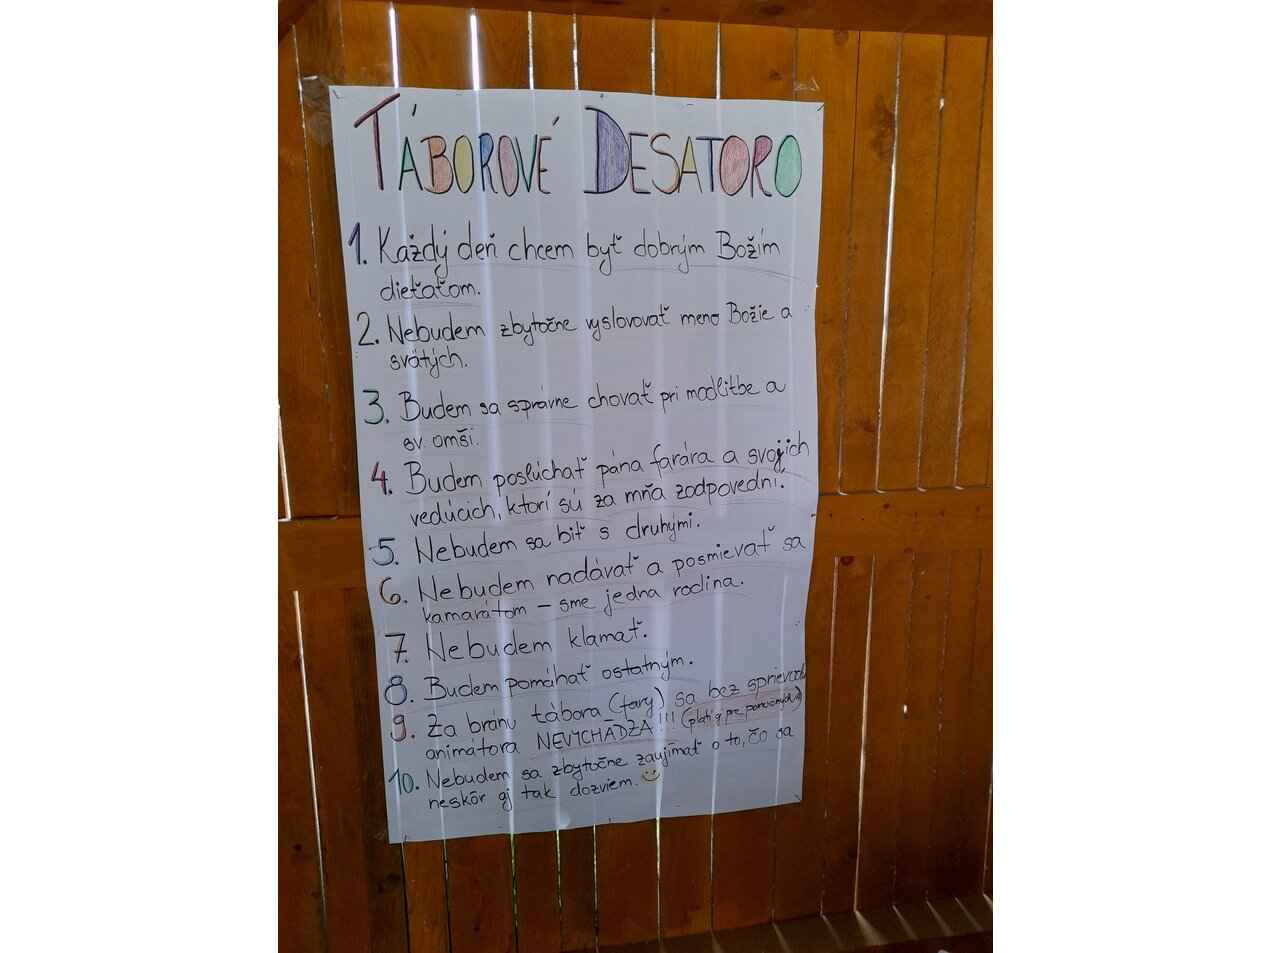 TÁBOROVÉ DESATORO
1. Každý deň chcem byť dobrým Božím
dieťaťom.
2. Nebudem zbytočne vyslovovať meno Božie a
svätých.
3. Budem sa správne chovať pri modlitbe a
sv. omši.
4. Budem poslúchať pána farára a svojich
vedúcich, ktorí sú za mňa zodpovední.
5. Nebudem sa biť s druhými.
6. Nebudem nadávať a posmievať sa
kamarátom – sme jedna rodina.
7. Nebudem klamať.
8. Budem pomáhať ostatným.
9. Za bránu tábora (fary) sa bez sprievodu
animátora NEVYCHÁDZA!!! (platí aj pre
10. Nebudem sa zbytočne zaujímať o to, čo sa
neskôr aj tak dozviem. 🙂